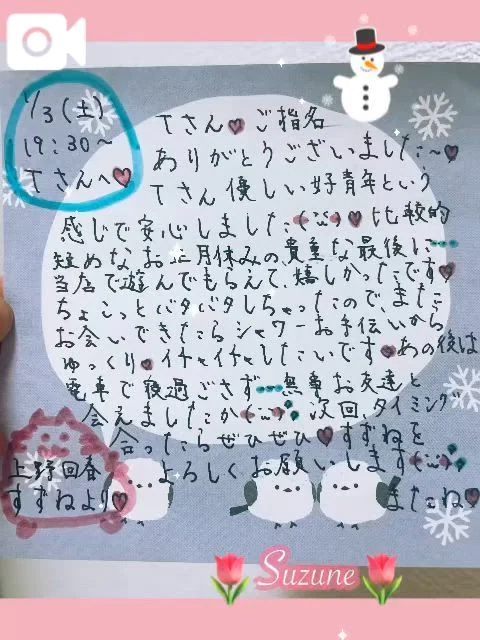 1/3(土)
19:30~
Tさんへ♥
Tさん♥ご指名
ありがとうございました~♥
Tさん優しい好青年という
感じで安心しました(¨̮)♥比較的
短めなお正月休みの貴重な最後に…
当店で遊んでもらえて、嬉しかったです♥
ちょこっとバタバタしちゃったので、また
お会いできたらシャワーお手伝いから
ゆっくり♥イチャイチャしたいです♥あの後は
電車で寝過ごさず…無事お友達と
会えましたか(¨̮)?次回、タイミング
合ったらぜひぜひ♥すずねを
よろしくお願いします(¨̮)
またね♥
上野回春
すずねより♥
Suzune